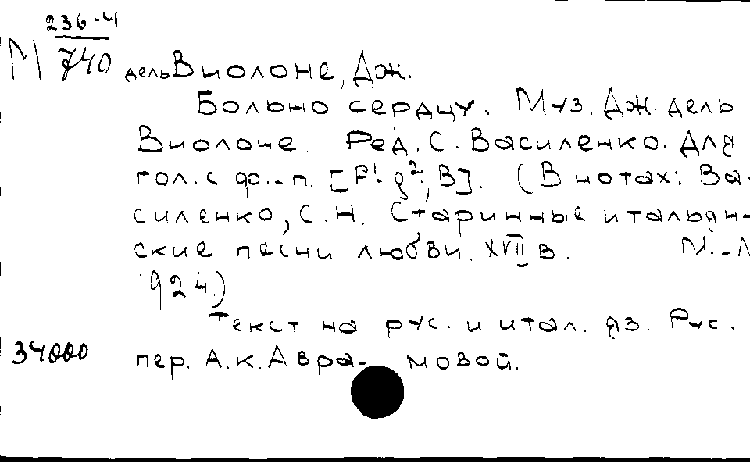 236-4
М 740 дель Виолоне, Дж.
Больно сердцу. Муз. Дж. дель
Виолоне. Ред. С. Василенко. Для
гол. с фо.-п. [F¹ g², В]. (В нотах: Ва-
силенко, С.Н. Старинные итальян-
ские песни любви. XVII в. М.-
924)
Текст на рус. и итал. яз. Рус.
34000 пер. А.К. Авра- мовой.